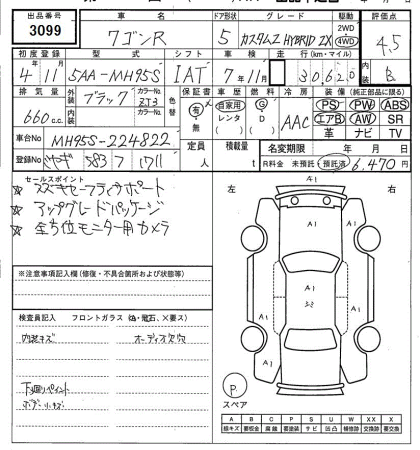 出品番号 車名 ドア形状 グレード 駆動 評価点
3099 ワゴンR 5 カスタムZ HYBRID ZX 2WD 4WD 4.5
初度登録 型式 シフト 車検 走行(km・マイル) 内装
4年11月 5AA-MH95S IAT 7年11月 30620 B
排気量 外装 ブラック カラーNo. ZJ3 色替 保証書 車歴 燃料 冷房 装備(純正部品に限る)
660c.c. 内装 カラーNo. 有 無 自家用 レンタ G D AAC PS PW ABS
エアB AW SR
革 ナビ TV
車台No MH95S-224822 定員 積載量 名変期限 年 月 日
登録No 583 1711 人 t R料金 未預託 預託済 6,470円
セールスポイント
☆ スズキセーフティサポート
☆ アップグレードパッケージ
☆ 全方位モニター用カメラ
左 右
A1
A1 A1
A1
A1
A1
※注意事項記入欄(修復・不具合箇所および状態等)
検査員記入 フロントガラス(A・飛石、×要ス)
内装キズ オーディオ欠穴
下廻りペイント
ボデー小キズ
P.
スペア
A B C P S U W X XX
線キズ 要板金 腐蝕 要塗装 サビ 凹凸 補修跡 要交換 交換跡